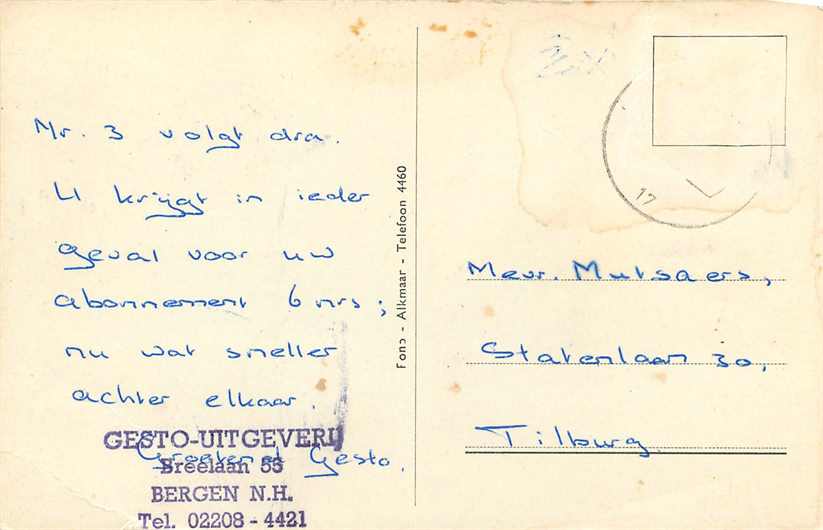 Nr. 3 volgt dra.
U krijgt in ieder
geval voor uw
abonnement 6 nrs;
nu wat sneller
achter elkaar.
Groetend Gesto.
GESTO-UITGEVERIJ
Breelaan 55
BERGEN N.H.
Tel. 02208-4421
Fono - Alkmaar - Telefoon 4460
17
Mevr. Mutsaers,
Statenlaan 30,
Tilburg